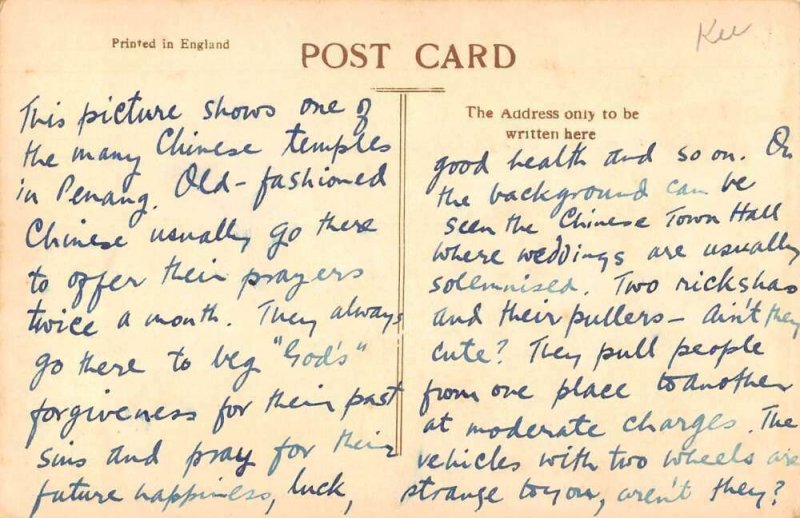 Printed in England
POST CARD
Kew
The Address only to be
written here
This picture shows one of
the many Chinese temples
in Penang. Old-fashioned
Chinese usually go there
to offer their prayers
twice a month. They always
go there to beg "God's"
forgiveness for their past
sins and pray for their
future happiness, luck,
good health and so on. On
the background can be
seen the Chinese Town Hall
where weddings are usually
solemnised. Two rickshas
and their pullers — Ain't they
cute? They pull people
from one place to another
at moderate charges. The
vehicles with two wheels are
strange to you, aren't they?